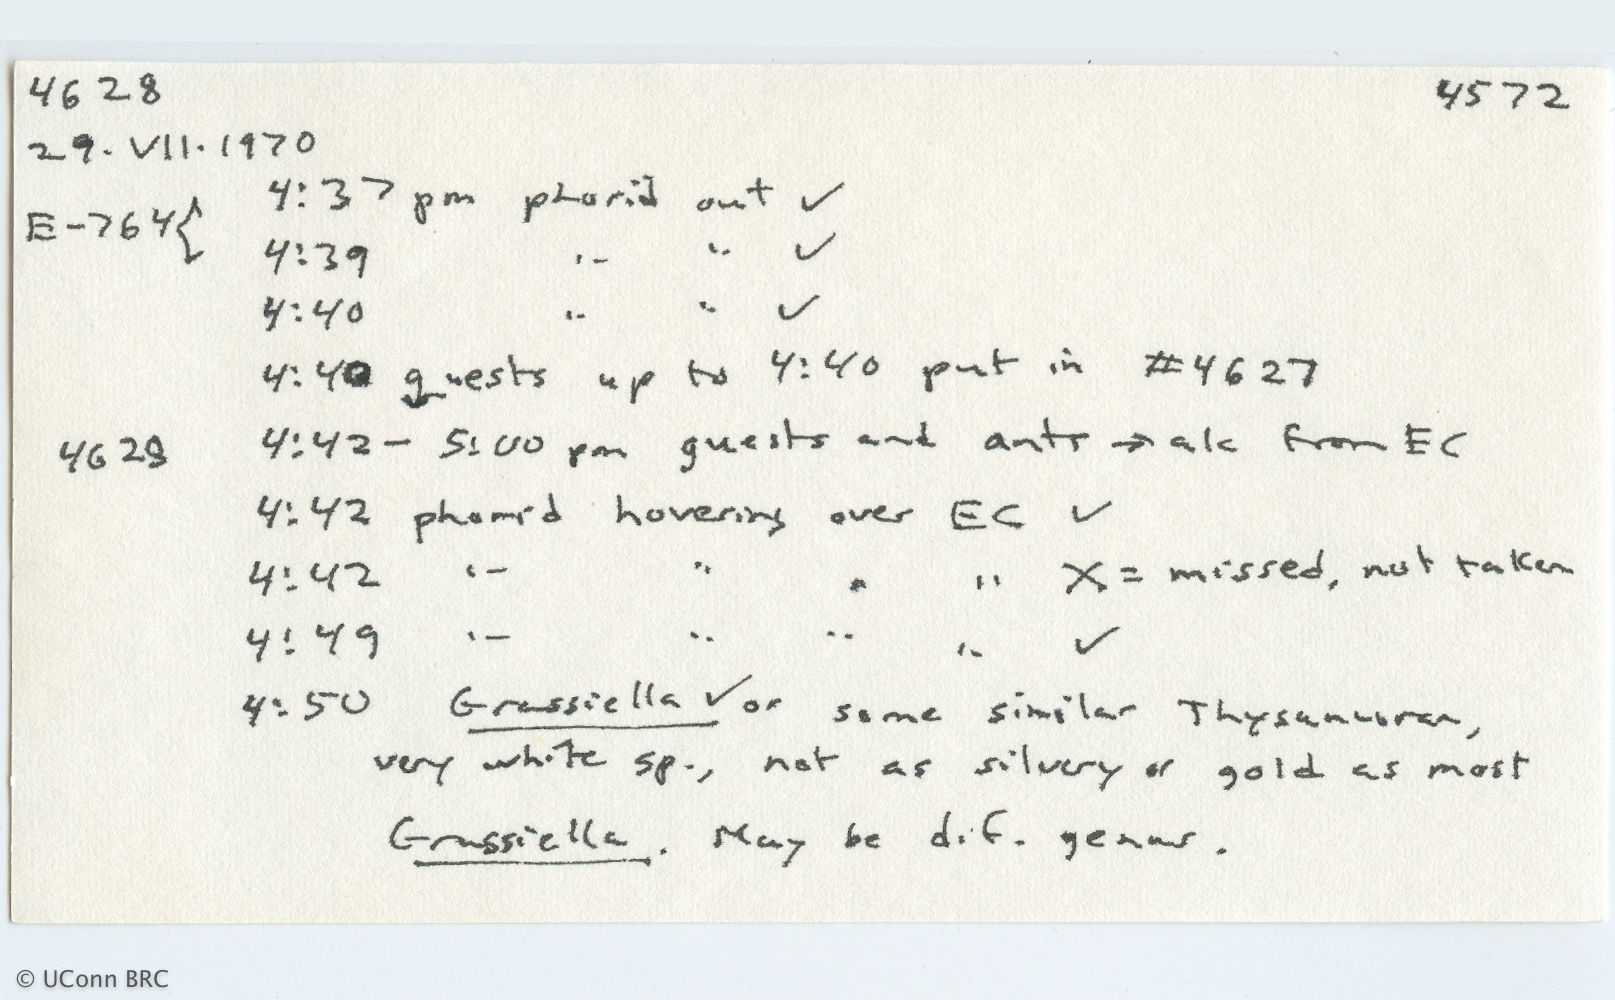 4628 4572
29. VII. 1970
E-764 { 4:37 pm phorid out ✓
4:39 " " ✓
4:40 " " ✓
4:40 guests up to 4:40 put in #4627
4628 4:42 - 5:00 pm guests and ants → alc from EC
4:42 phorid hovering over EC ✓
4:42 " " " " X = missed, not taken
4:49 " " " " ✓
4:50 Grassiella ✓ or some similar Thysanuran,
very white sp., not as silvery or gold as most
Grassiella. May be dif. genus.
© UConn BRC